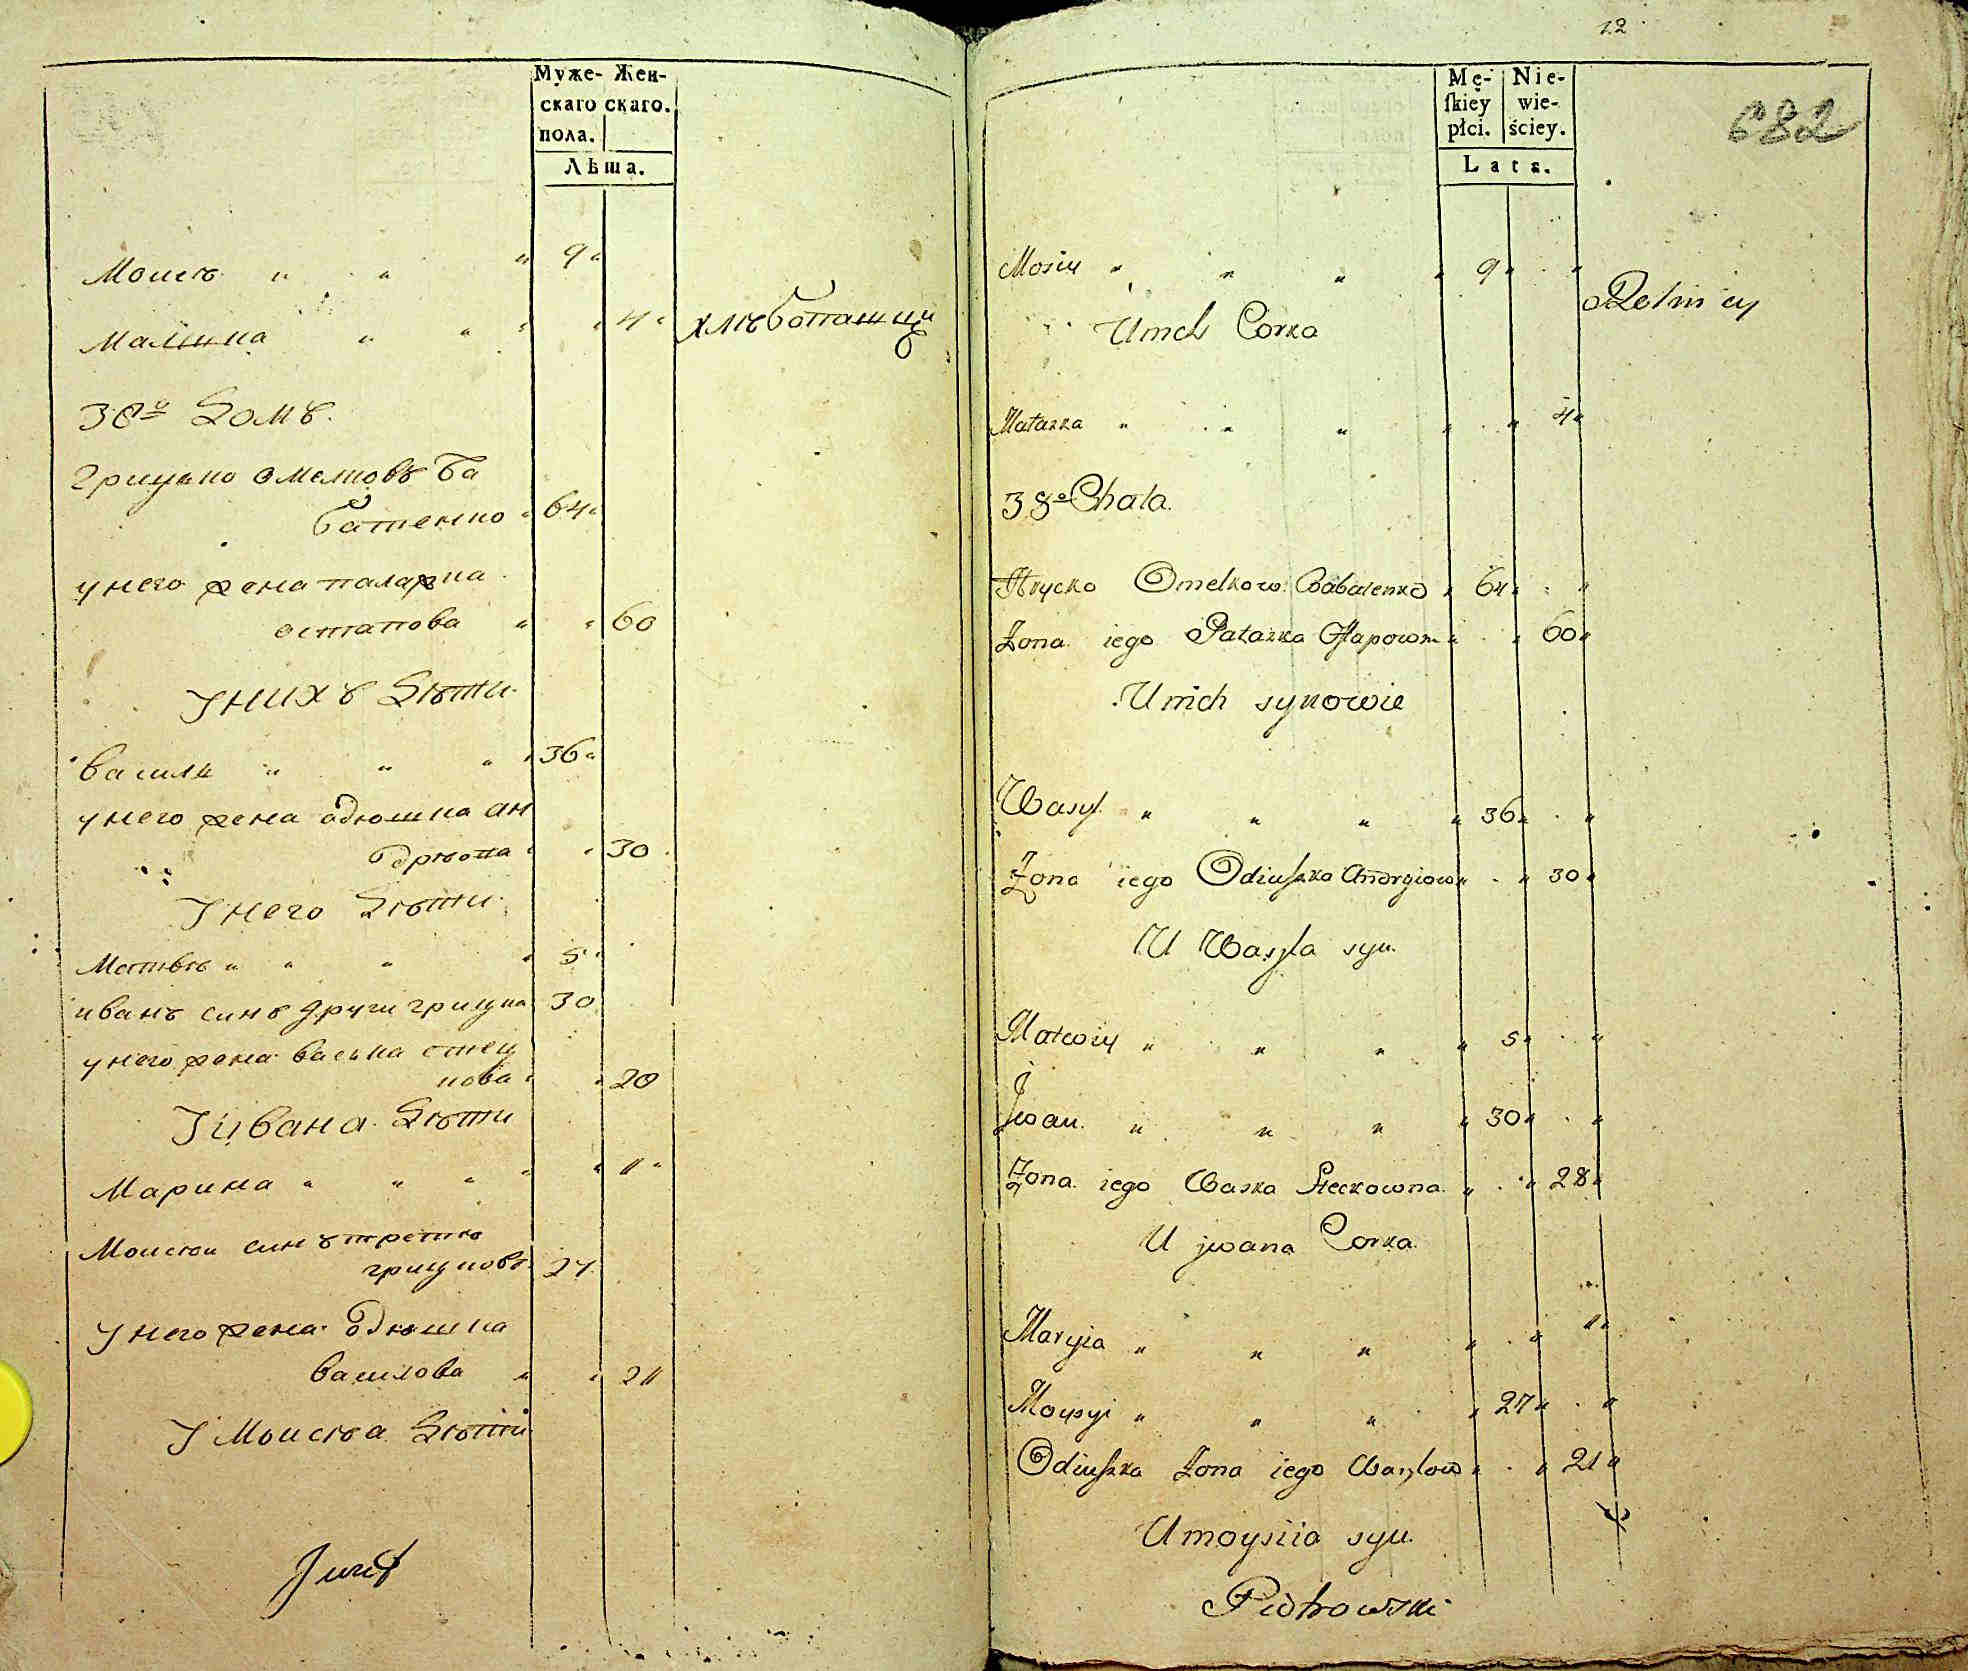 Муже- Жен-
скаго скаго.
пола.
Лѣта.
Моисѣ " " " 9 "
Малашка " " " " 4 " хлѣбопашцы
38о Домъ.
грицько омелковъ ба
батенко " 64 "
унего жена палажка
остапова " " 60
Унихъ Дѣти
василь " " " 36 "
унего жена одюшка ан
дрѣова " " 30
Унего Дѣти
Матвѣ " " " " 5 "
иванъ синъ други грицка 30
унего жена васька стец
кова " " 20
Уивана Дѣти
Марина " " " " " 1 "
Моисѣи синъ третѣ
грицковъ 27
Унего жена Одюшка
василова " " 21
УМоисѣа Дѣти
12
682
Mę- Nie-
ſkiey wie-
płci. ściey.
Lata.
Mosiy " " " " 9 " . "
Unich Corka
Rolnicy
Małaszka " " " " . " 4 "
38o Chata.
Hrycko Omelkow Babatenko " 64 " . "
Żona iego Pałaszka Ostapowna " . " 60 "
Unich synowie
Wasyl " " " " 36 " . "
Żona iego Odiuszka Andryiow " . " 30 "
U Wasyla syn
Matwiy " " " " 5 " . "
Jwan " " " " 30 " . "
Żona iego Waska Steckowna " . " 28 "
U jwana Corka
Maryia " " " " . " 1 "
Moysyi " " " " 27 " . "
Odiuszka Żona iego Wasylow " . " 21 "
Umoysiia syn
Piotrowski